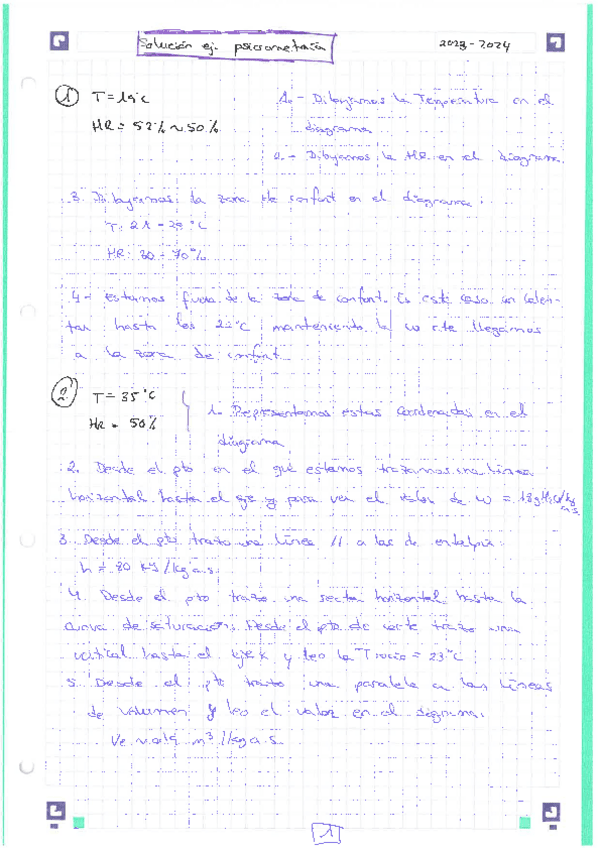 Solución ej. psicrometría 2023-2024
① T = 19°C 1.- Dibujamos la Temperatura en el
HR = 52% ~ 50% diagrama
2.- Dibujamos la HR en el diagrama.
3. Dibujamos la zona de confort en el diagrama:
T: 21 - 25 °C
HR: 30 - 70%
4- estamos fuera de la zona de confort. En este caso, un calen-
tar hasta los 22°C manteniento la w cte llegamos
a la zona de confort
② T = 35°C
HR = 50% 1. Representamos estas coordenadas en el
diagrama
2. Desde el pto en el que estamos trazamos una línea
horizontal hasta el eje y para ver el valor de w = 18gH2O/kg
a.s.
3. Desde el pto trazo una línea // a las de entalpía
h = 80 KJ/kg a.s.
4. Desde el pto trazo una secta horizontal hasta la
curva de saturación. Desde el pto de corte trazo una
vertical hasta el eje x y leo la T rocío = 23°C
5. Desde el pto trazo una paralela a las líneas
de volumen y leo el valor en el diagrama.
m³/kg a.s.
1